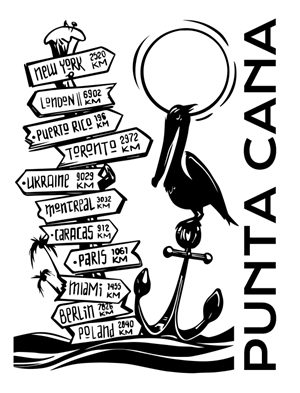 NEW YORK 2520 KM
LONDON 6902 KM
PUERTO RICO 196 KM
TORONTO 2972 KM
UKRAINE 9029 KM
MONTREAL 3032 KM
CARACAS 912 KM
PARIS 1061 KM
MIAMI 1455 KM
BERLIN 7826 KM
POLAND 2840 KM
PUNTA CANA